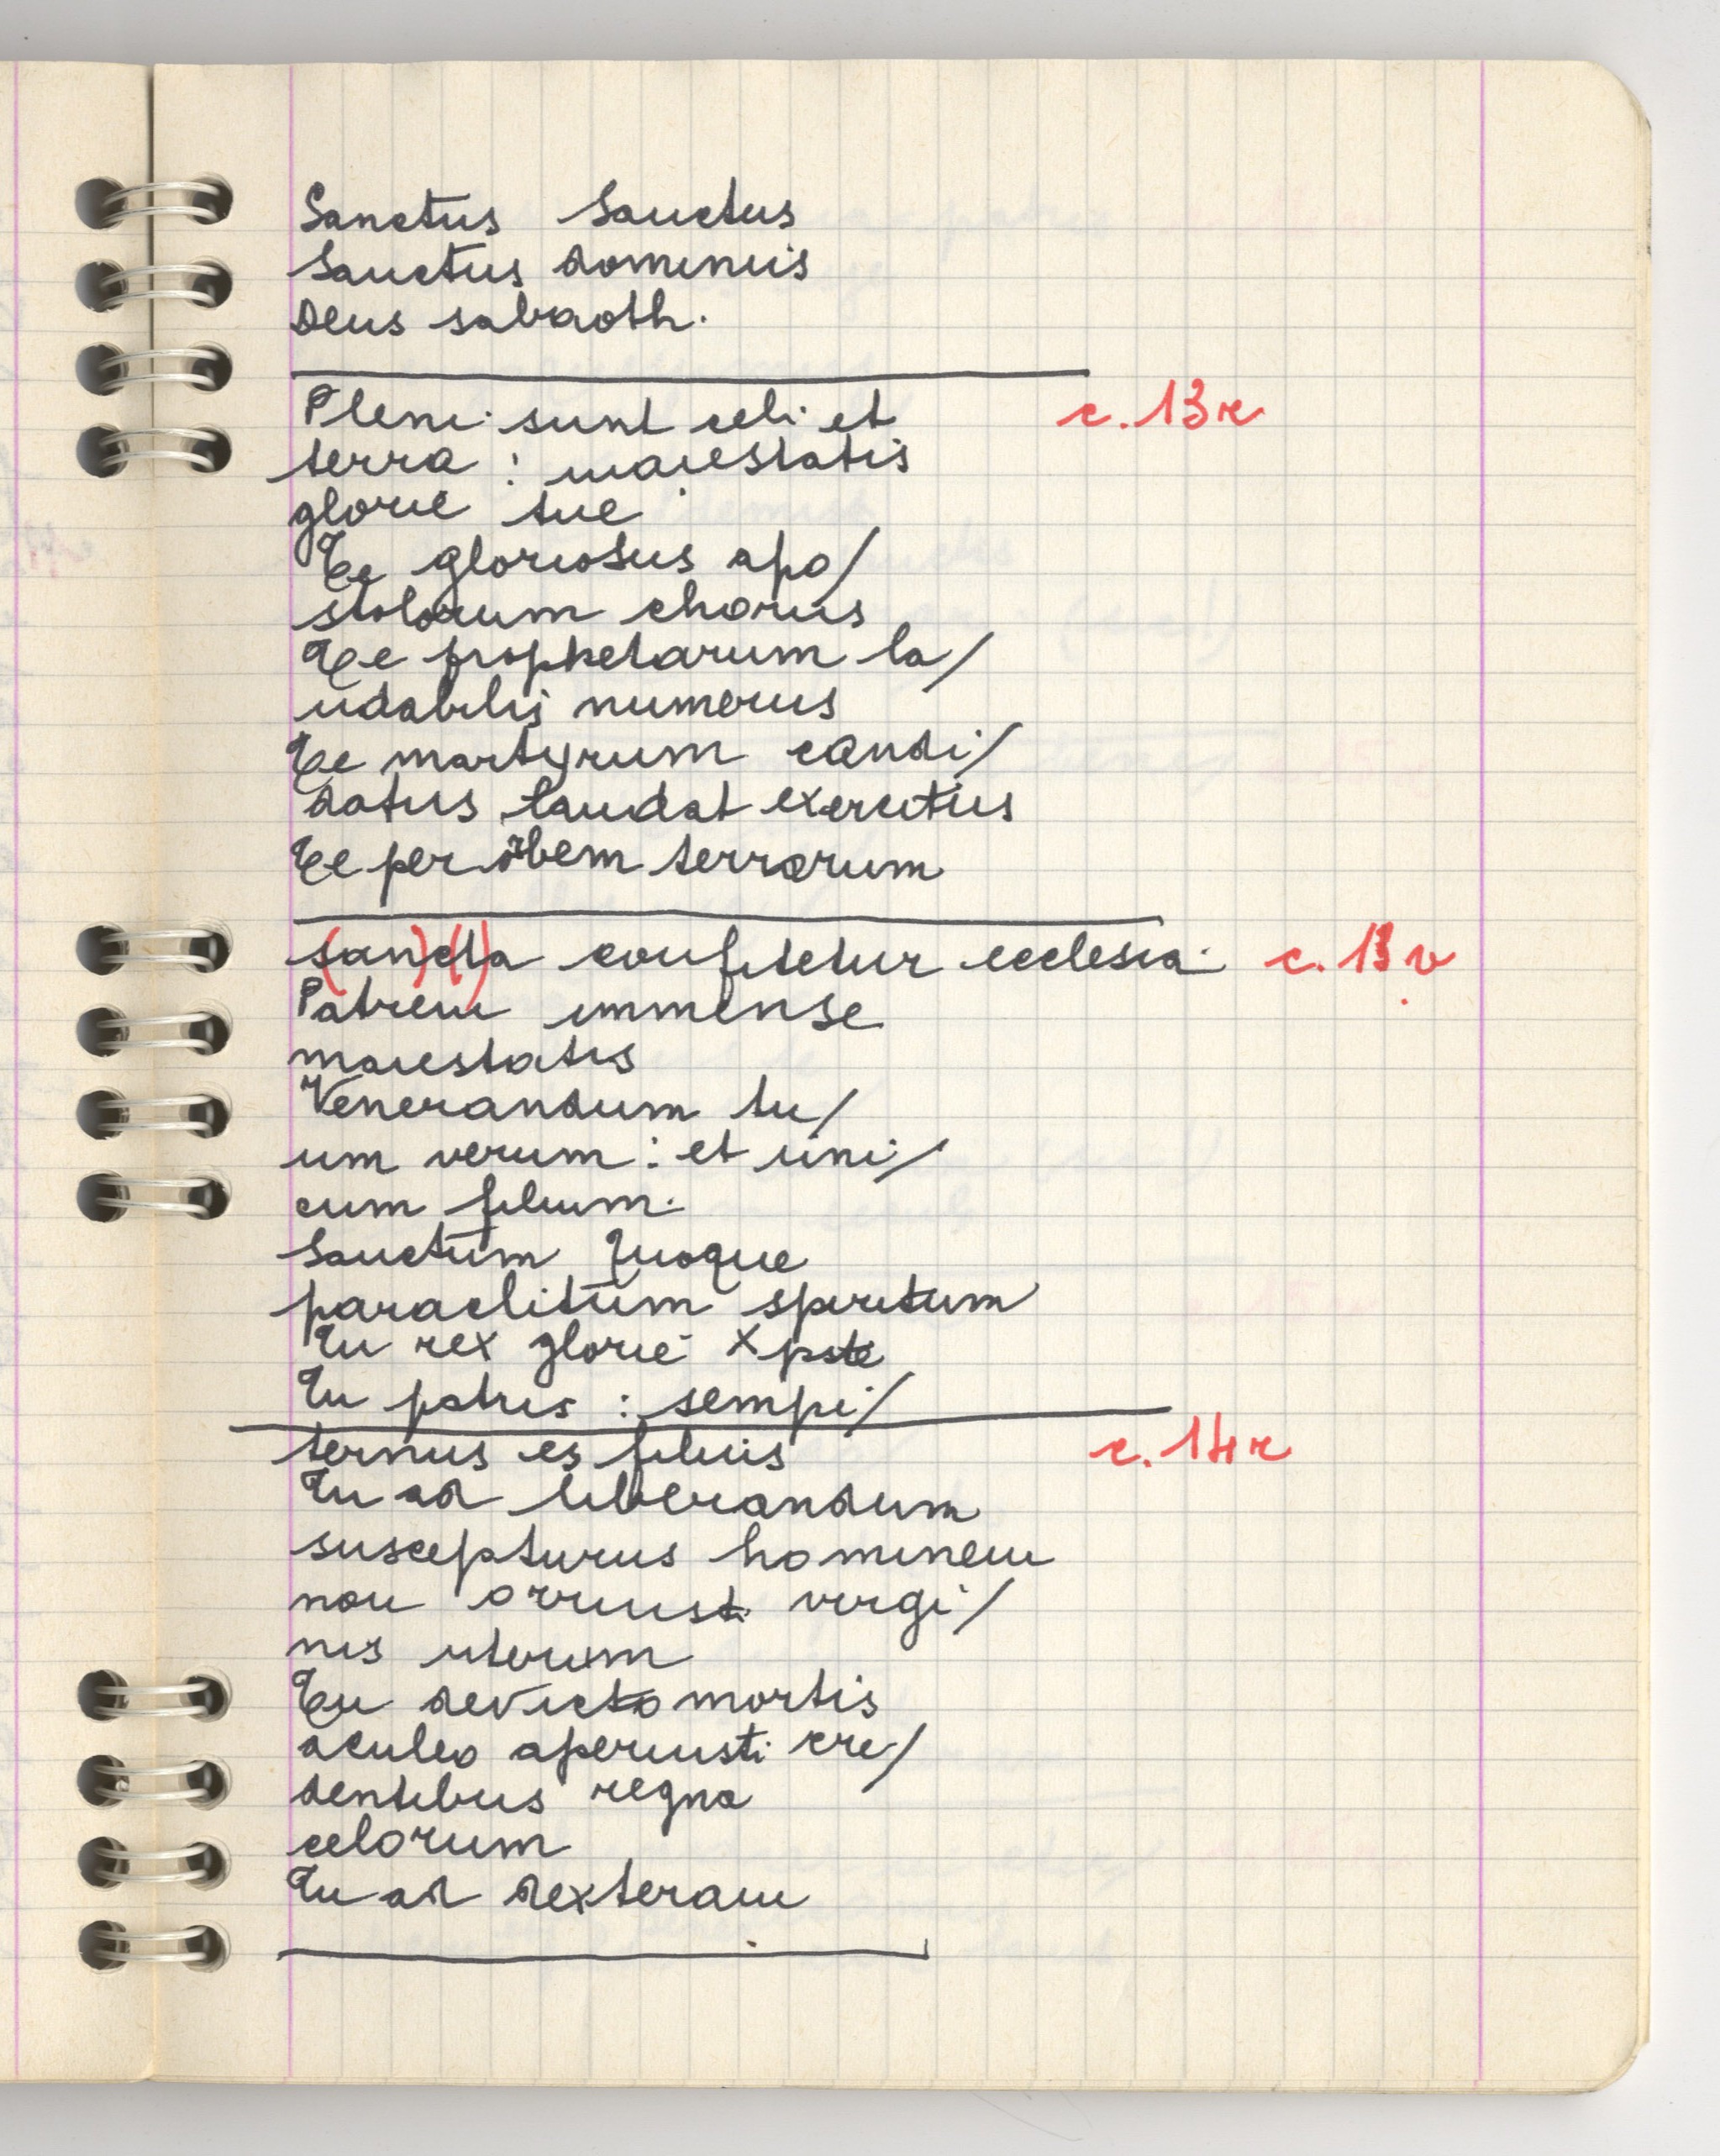 Sanctus Sanctus
Sanctus dominus
Deus sabaoth.
Pleni sunt celi et c. 13r
terra : maiestatis
glorie tue
Te gloriosus apo/
stolorum chorus
Te prophetarum la/
udabilis numerus
Te martyrum candi/
datus laudat exercitus
Te per orbem terrarum
s(an)c(t)a confitetur ecclesia. c. 13v
Patrem immense
maiestatis
Venerandum tu/
um verum : et uni/
cum filium.
Sanctum quoque
paraclitum spiritum
Tu rex glorie xpste
Tu patris : sempi/
ternus es filius c. 14r
Tu ad liberandum
suscepturus hominem
non orruisti virgi/
nis uterum
Tu devicto mortis
aculeo aperuisti cre/
dentibus regna
celorum
Tu ad dexteram